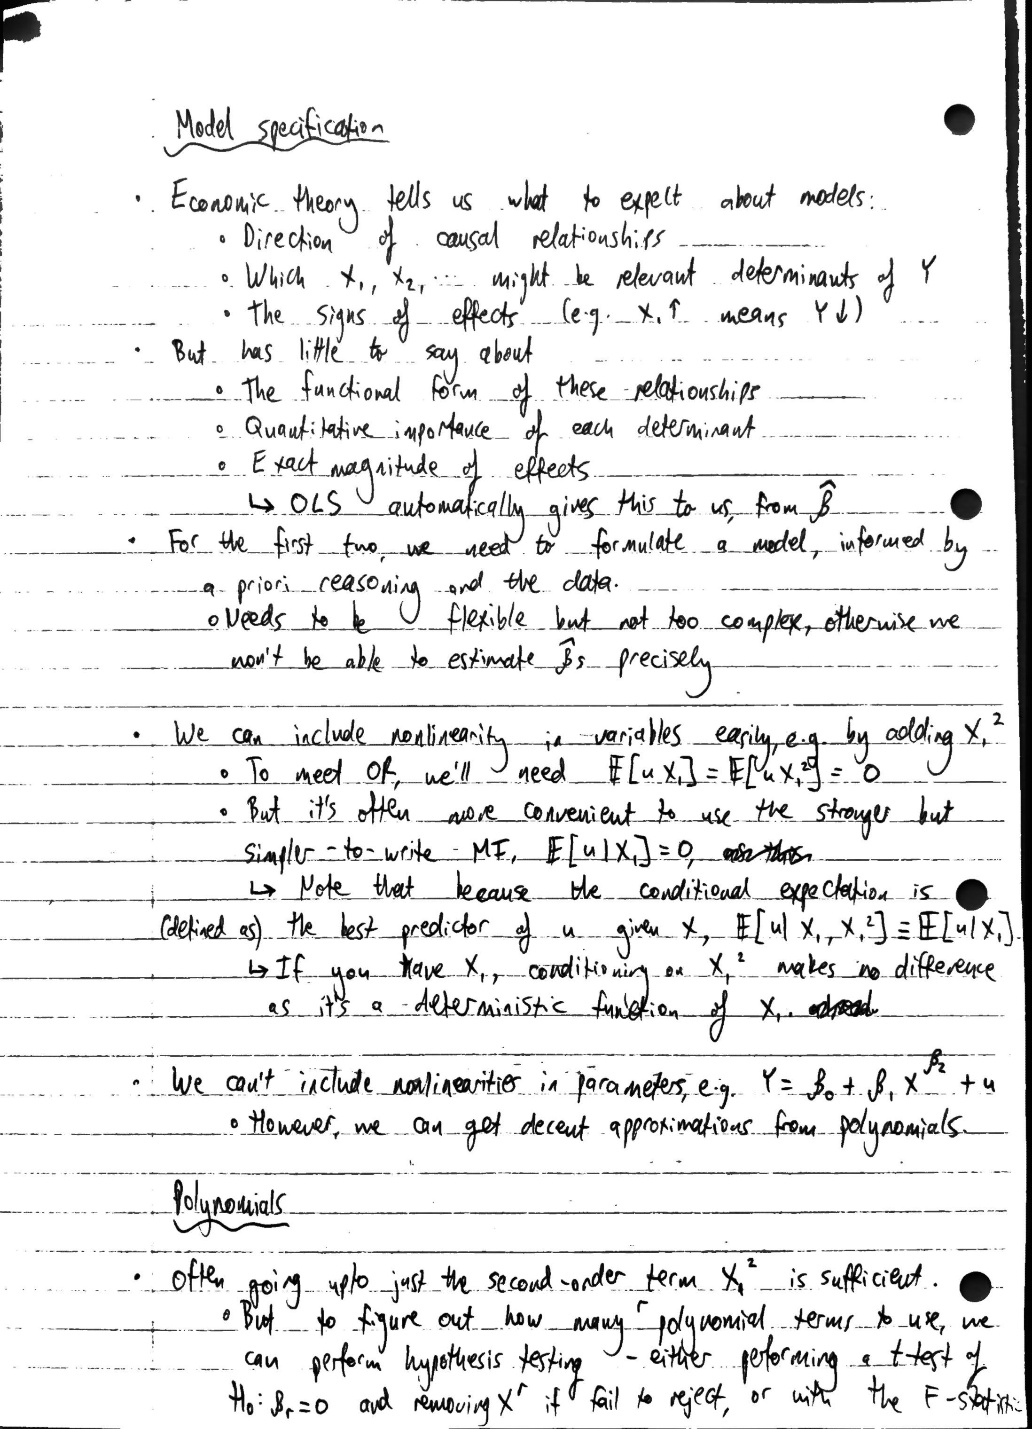 Model specification
• Economic theory tells us what to expect about models:
∘ Direction of causal relationships
∘ Which X₁, X₂, ... might be relevant determinants of Y
∘ The signs of effects (e.g. X₁↑ means Y↓)
• But has little to say about
∘ The functional form of these relationships
∘ Quantitative importance of each determinant
∘ Exact magnitude of effects
↳ OLS automatically gives this to us, from β̂
• For the first two, we need to formulate a model, informed by
a priori reasoning and the data.
∘ Needs to be flexible but not too complex, otherwise we
won't be able to estimate β̂s precisely
• We can include nonlinearity in variables easily, e.g. by adding X₁²
∘ To meet OR, we'll need 𝔼[uX₁] = 𝔼[uX₁²] = 0
∘ But it's often more convenient to use the stronger but
simpler-to-write MI, 𝔼[u|X₁] = 0,
↳ Note that because the conditional expectation is
(defined as) the best predictor of u given X, 𝔼[u|X₁, X₁²] ≡ 𝔼[u|X₁]
↳ If you have X₁, conditioning on X₁² makes no difference
as it's a deterministic function of X₁.
• We can't include nonlinearities in parameters, e.g. Y = β₀ + β₁X^β₂ + u
∘ However, we can get decent approximations from polynomials.
Polynomials
• Often going upto just the second-order term X₁² is sufficient.
∘ But to figure out how many r polynomial terms to use, we
can perform hypothesis testing - either performing a t-test of
H₀: βᵣ=0 and removing Xʳ if fail to reject, or with the F-statistic